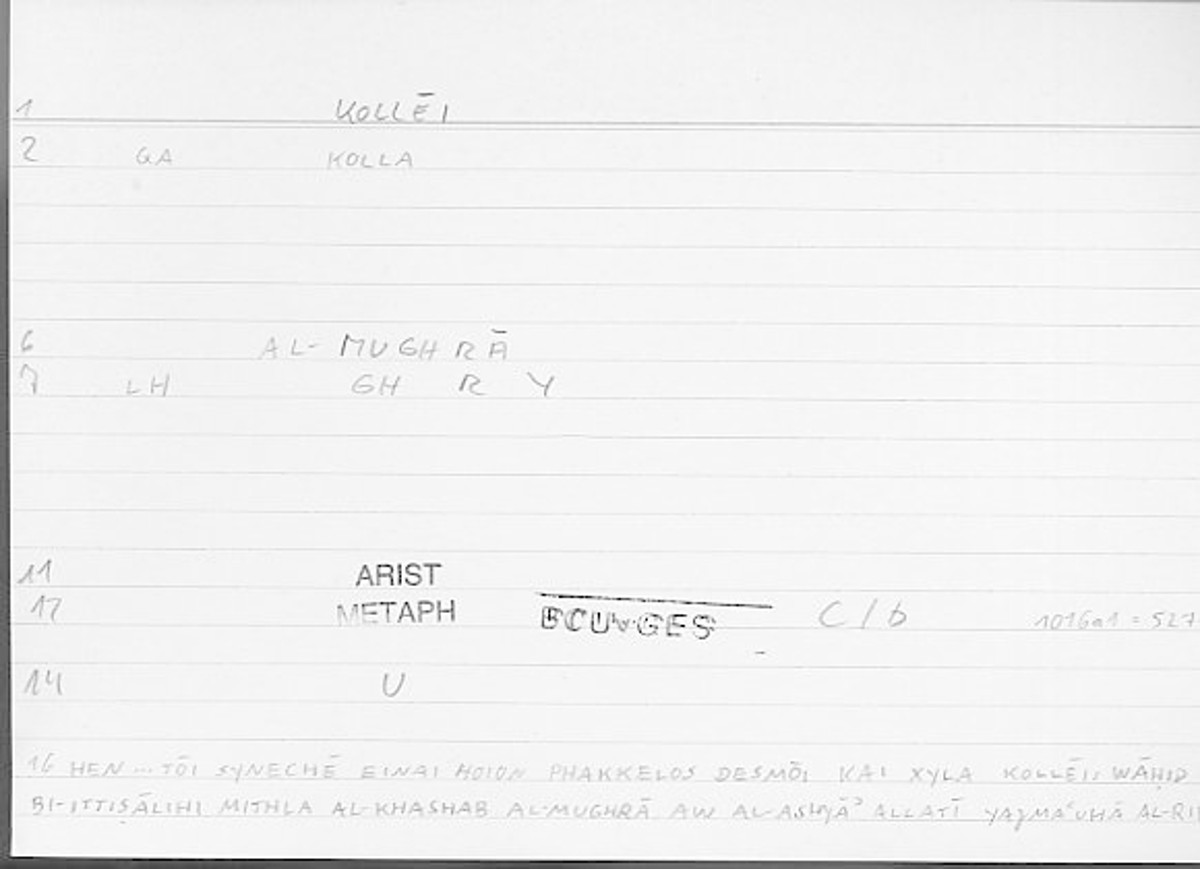 1 KOLLĒI
2 GA KOLLA
6 AL-MUGHRĀ
7 LH GH R Y
11 ARIST
12 METAPH BOUYGES C/b 1016a1 = 527
14 U
16 HEN ... TŌI SYNECHĒ EINAI HOION PHAKKELOS DESMŌI KAI XYLA KOLLĒI: WĀḤID
BI-ITTIṢĀLIHI MITHLA AL-KHASHAB AL-MUGHRĀ AW AL-ASHYĀʾ ALLATĪ YAJMAʿUHĀ